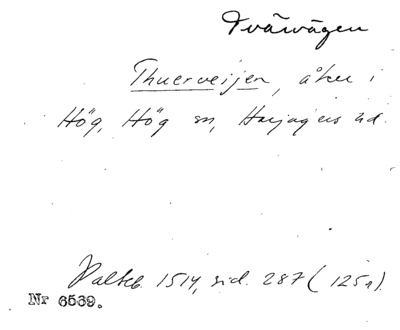 Tvärvägen
Thuerveijen, åker i
Hög, Hög sn, Harjagers hd.
Palteb. 1514, sid. 287 (125a).
Nr 6569.